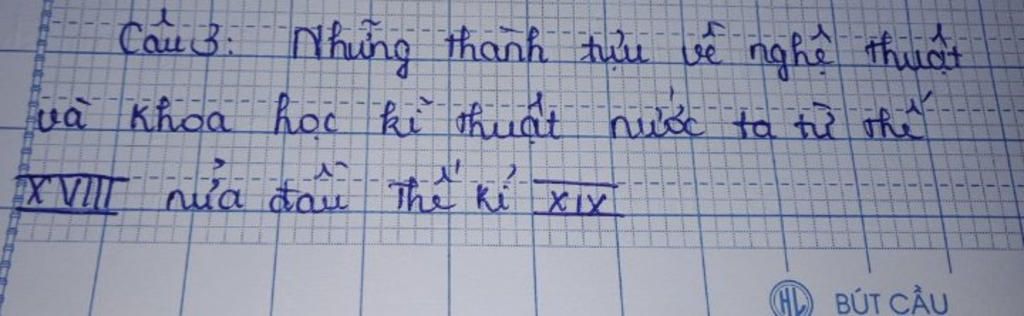 Câu 3: Những thành tựu về nghệ thuật
và khoa học kĩ thuật nước ta từ thế
XVIII nửa đầu thế kỉ XIX
HL BÚT CẦU